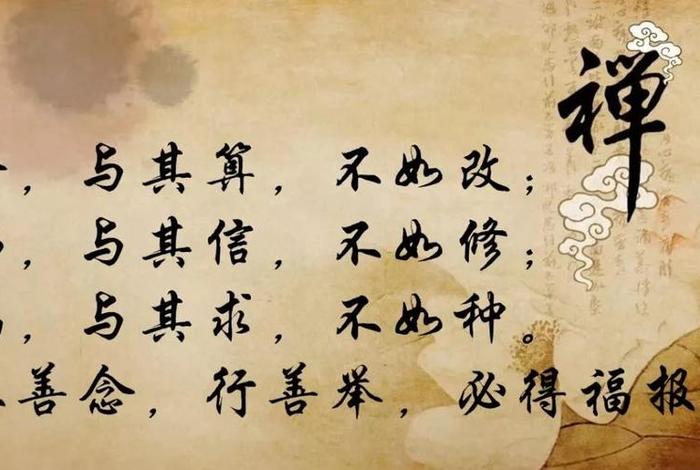 ，与其算，不如改；
，与其信，不如修；
，与其求，不如种。
善念，行善举，必得福报
禅